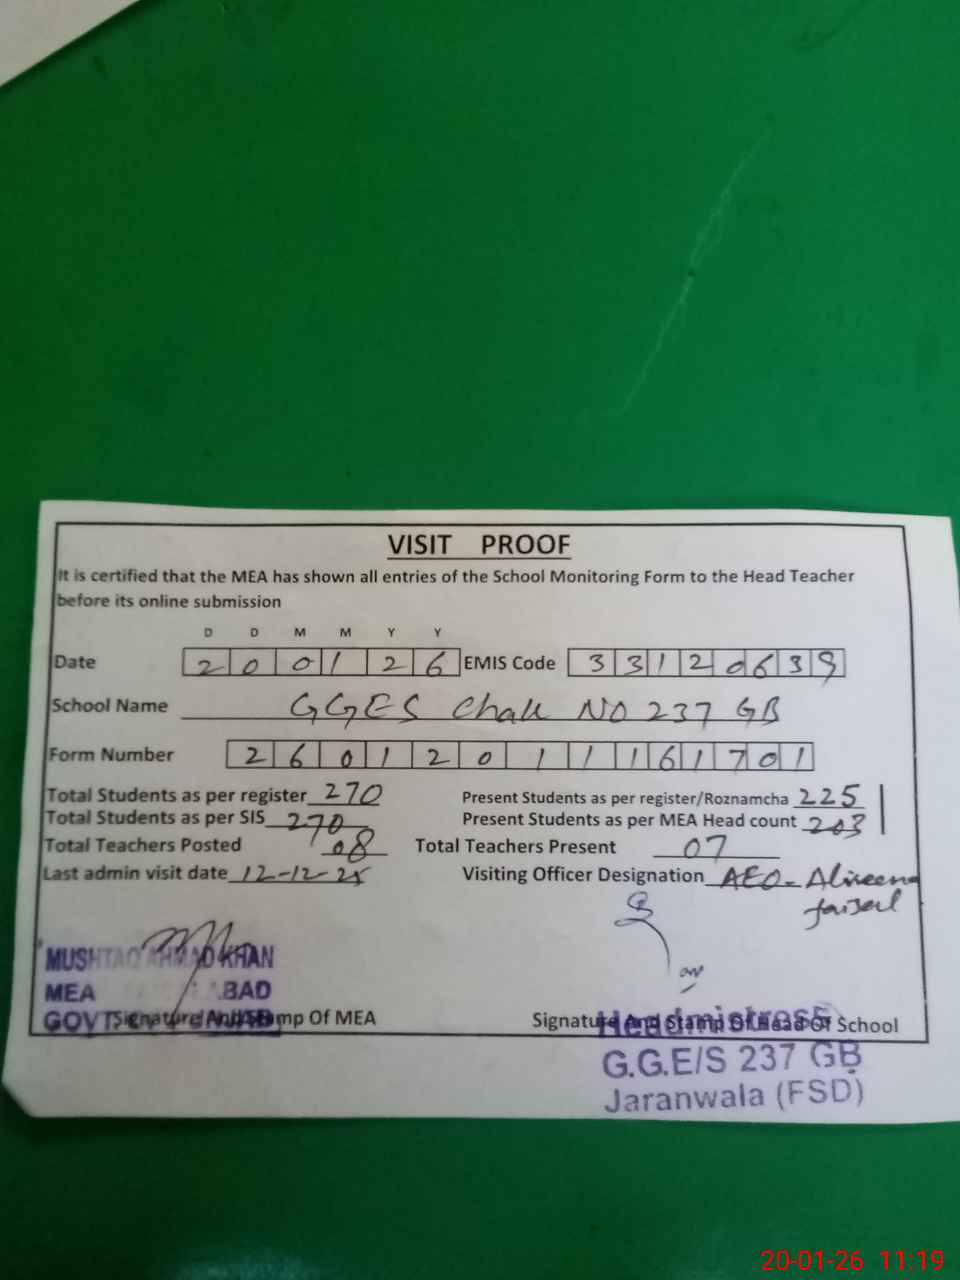 VISIT PROOF
It is certified that the MEA has shown all entries of the School Monitoring Form to the Head Teacher
before its online submission
D D M M Y Y
Date 2 0 0 1 2 6 EMIS Code 3 3 1 2 0 6 3 9
School Name GGES Chak NO 237 GB
Form Number 2 6 0 1 2 0 1 1 1 6 1 7 0 1
Total Students as per register 270 Present Students as per register/Roznamcha 225
Total Students as per SIS 270 Present Students as per MEA Head count 203
Total Teachers Posted 08 Total Teachers Present 07
Last admin visit date 12-12-25 Visiting Officer Designation AEO-
MUSHTAQ AHMAD KHAN
MEA
GOVT
Signature And Stamp Of MEA Signature And Stamp Of Head Of School
Headmistress
G.G.E/S 237 GB
Jaranwala (FSD)
20-01-26 11:19